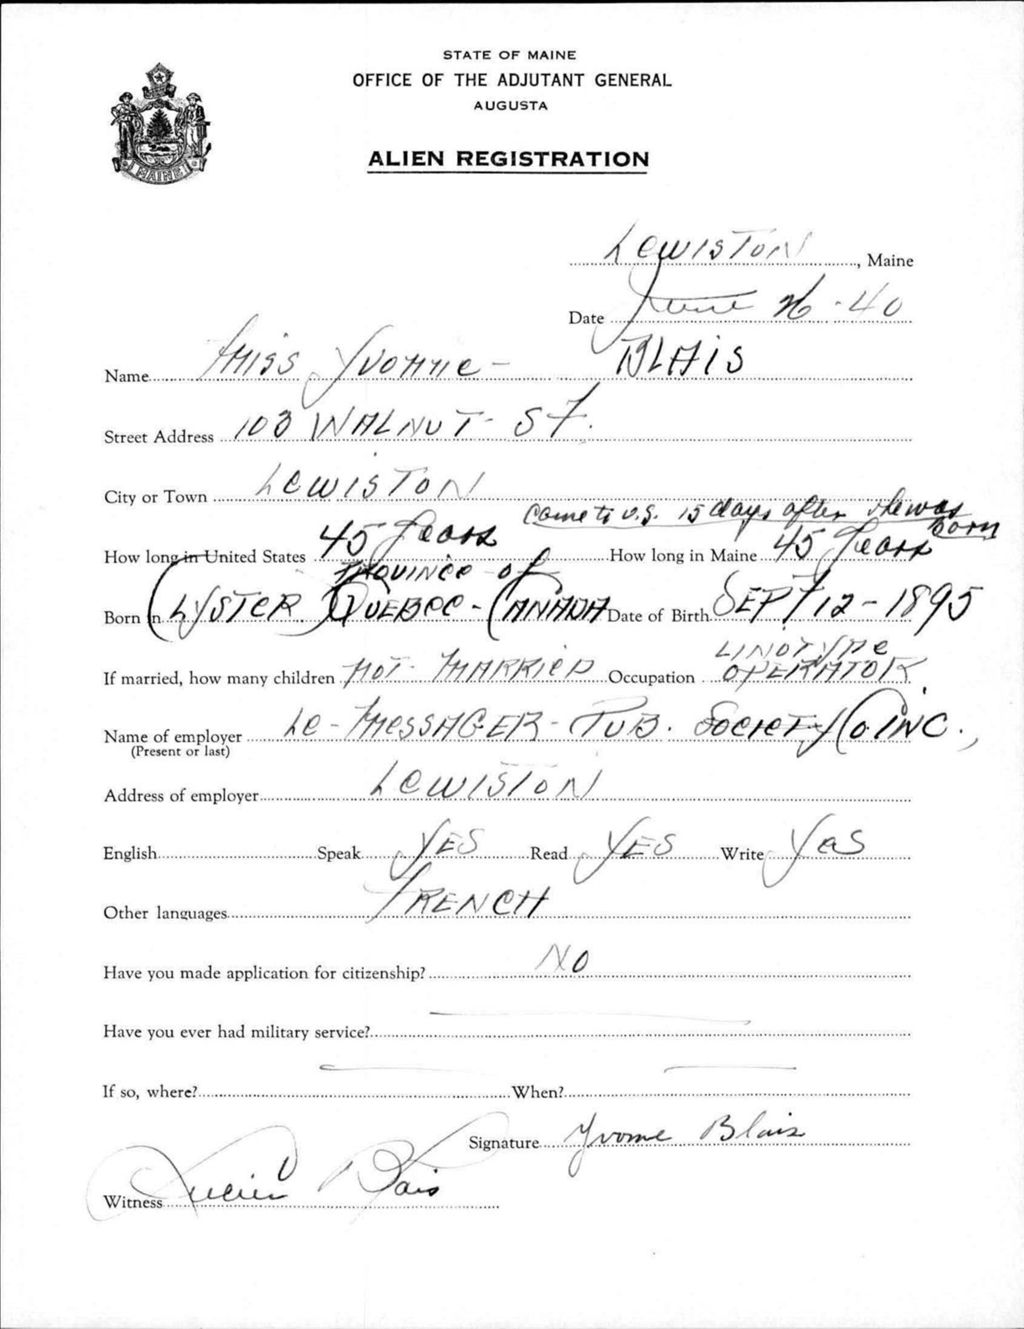 STATE OF MAINE
OFFICE OF THE ADJUTANT GENERAL
AUGUSTA
ALIEN REGISTRATION
MAINE
Lewiston, Maine
Date June 26-40
Name Miss Yvonne - Blais
Street Address 103 Walnut - St.
City or Town Lewiston
Came to U.S. 15 days after she was born
How long in United States 45 Years How long in Maine 45 Years
Province of
Born in (Lyster) Quebec - Canada Date of Birth Sept 12 - 1895
If married, how many children Not - Married Occupation Linotype Operator
Name of employer Le - Messager - Pub. Society Co. Inc.,
(Present or last)
Address of employer Lewiston
English Speak Yes Read Yes Write Yes
Other languages French
Have you made application for citizenship? No
Have you ever had military service?
If so, where? When?
Signature Yvonne Blais
Witness Lucien Blais